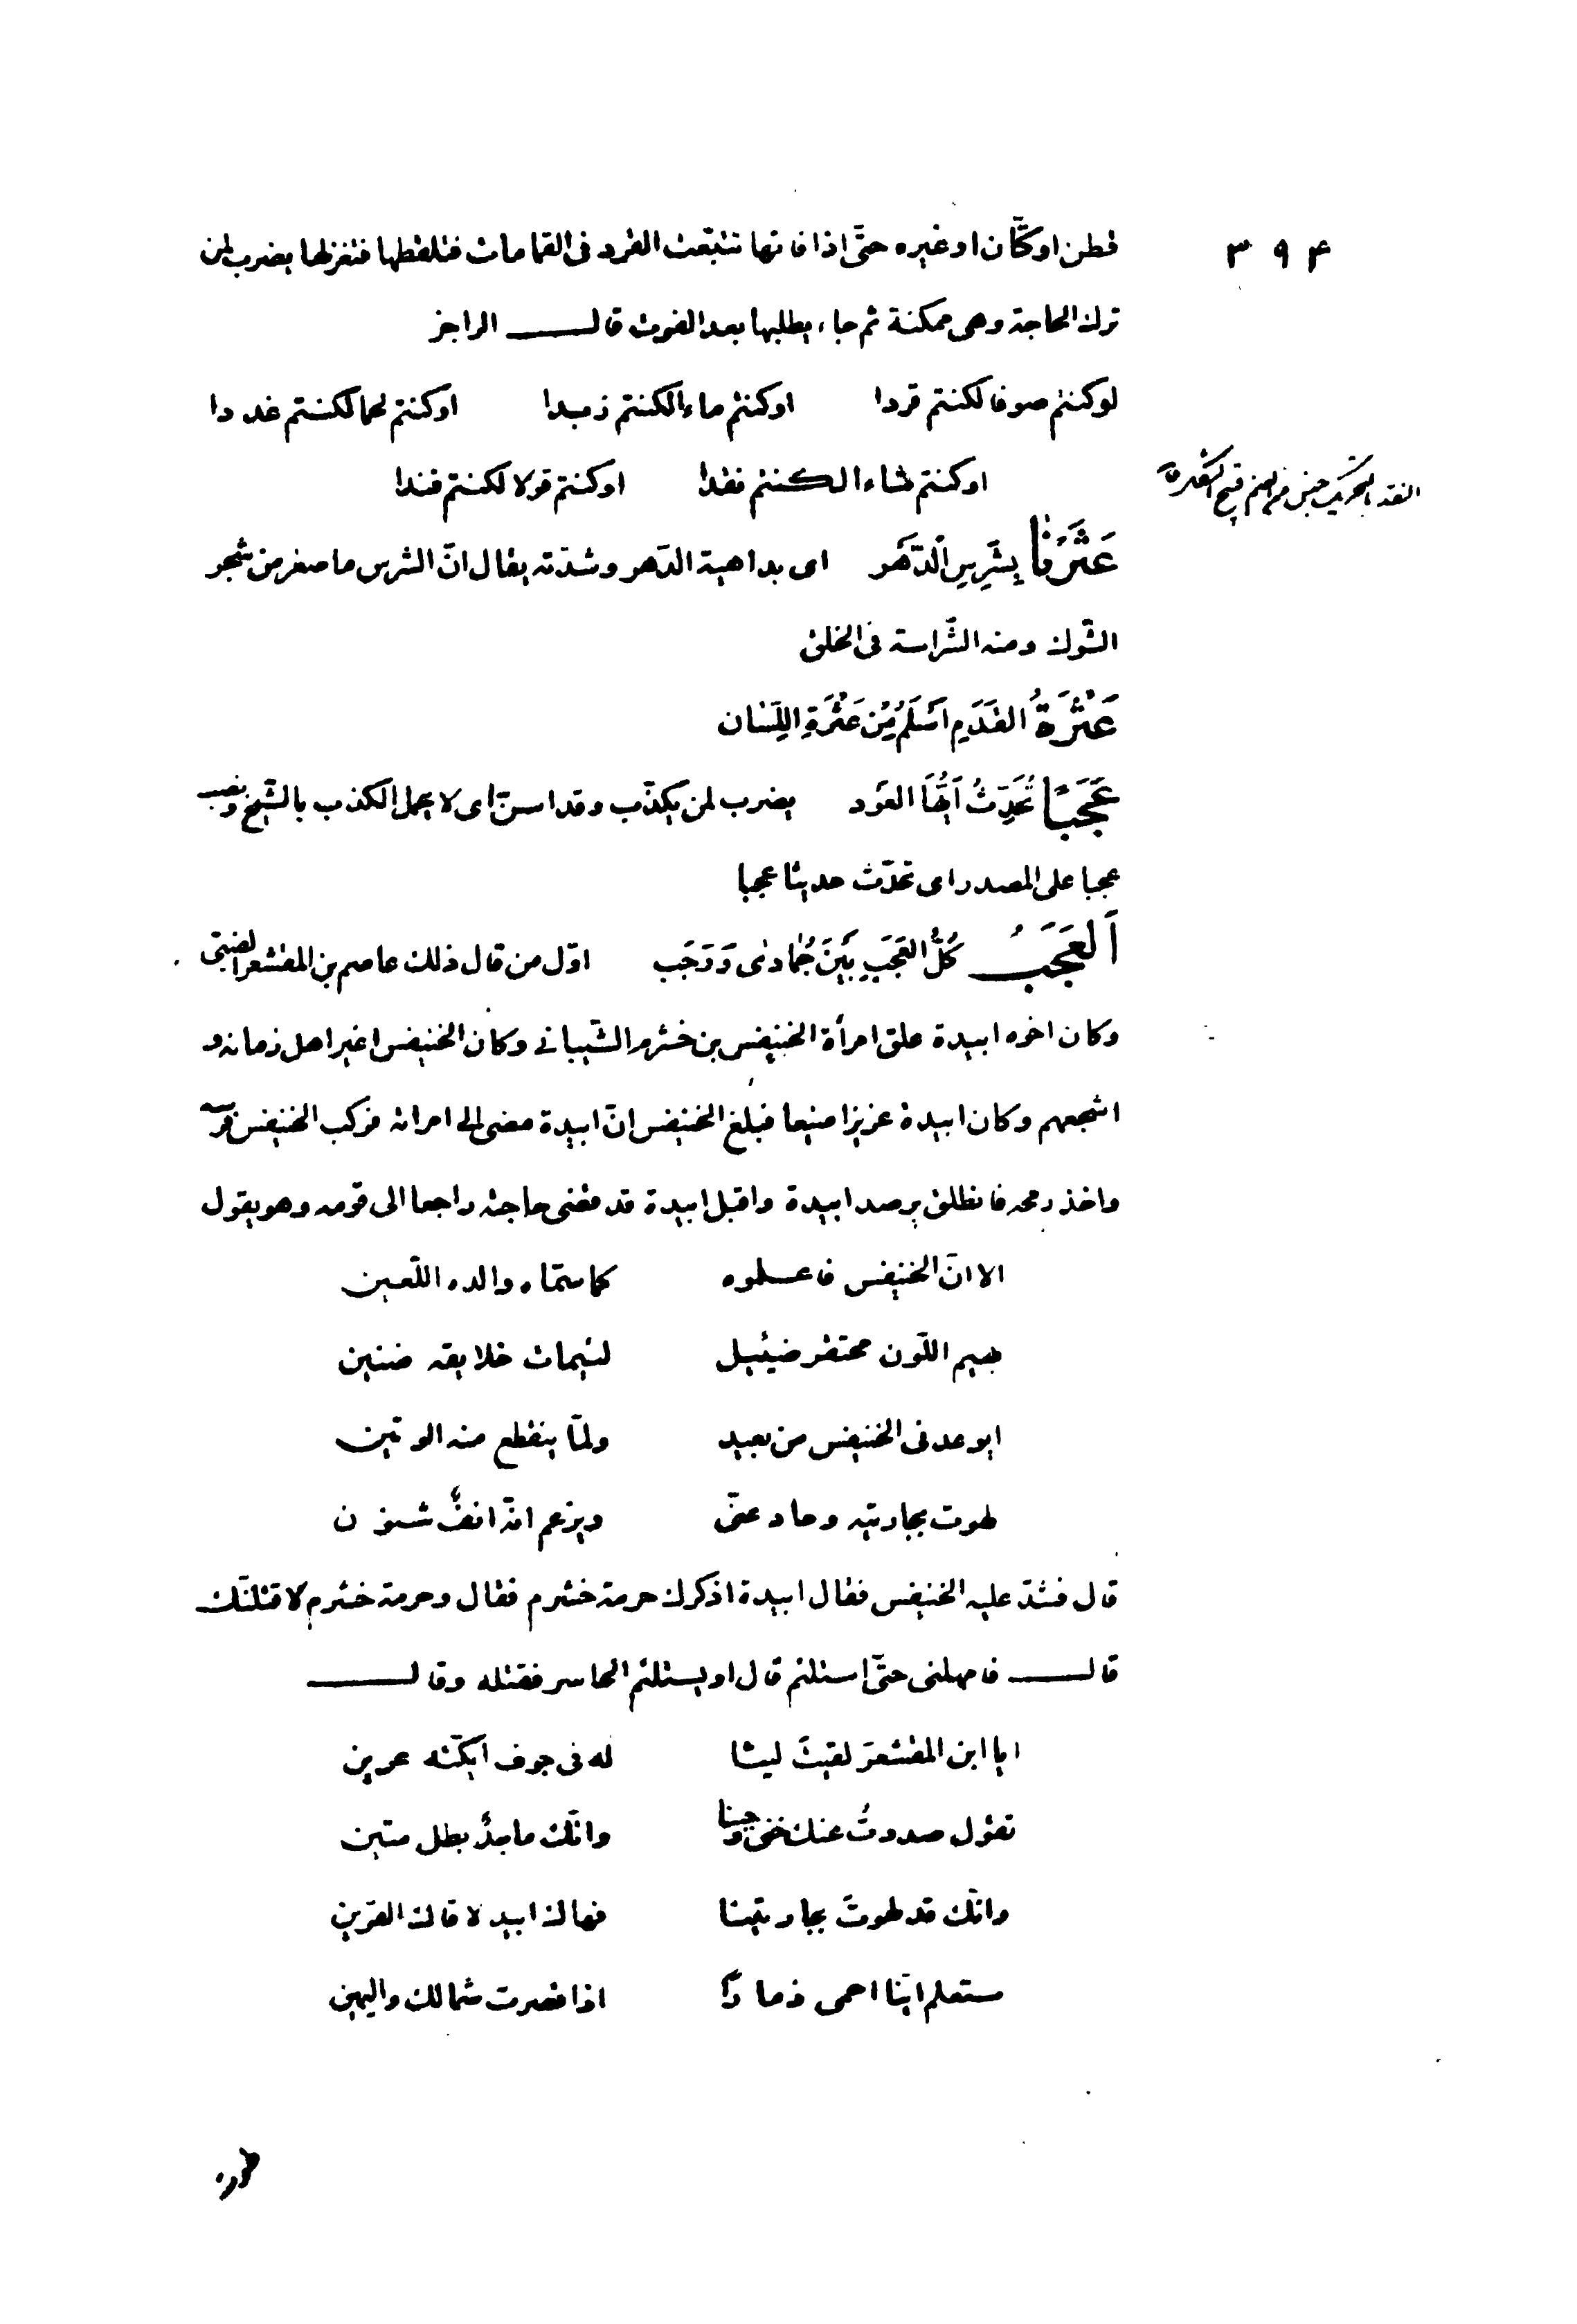 ٣٩۴
قطن او كتّان او غيره حتّى اذا فاتها تتبّعت القرد فى القمامات فتلقطها فتغزلها يضرب لمن
ترك الحاجة وهى ممكنة ثم جاء يطلبها بعد الفوت قال الراجز
لو كنتم صوفا لكنتم قردا اوكنتم ماء لكنتم زبدا اوكنتم لحما لكنتم غددا
اوكنتم شاء الكنتم نقدا اوكنتم قولا لكنتم فندا
النقد بالتحريك جنس من الغنم قبيح
عَثَرَتْ بِشَرِسِ الدَّهْرِ اى بداهية الدّهر وشدّته يقال انّ الشرس ما صغر من شجر
الشّوك ومنه الشّراسة فى الخلق
عَثْرَةُ القَدَمِ اَسْلَمُ مِنْ عَثْرَةِ اللِّسَان
عَجَبًا تُحَدِّثُ اَيُّهَا العَوْد يضرب لمن يكذّب وقد اسنّ اى لا يجمل الكذب بالشّيخ ونصب
عجبا على المصدر اى تحدّث حديثا عجبا
اَلعَجَبُ كُلُّ العَجَبِ بَيْنَ جُمَادٰى وَرَجَب اوّل من قال ذلك عاصم بن المقشعر الضبّى
وكان اخوه ابيدة علق امرأة الخنيفس بن خشرم الشّيبانى وكان الخنيفس اغير اهل زمانه و
اشجعهم وكان ابيدة عزيزا منيعا فبلغ الخنيفس انّ ابيدة مضى الى امراته فركب الخنيفس فرسه
واخذ رمحه فانطلق يرصد ابيدة واقبل ابيدة قد قضى حاجته راجعا الى قومه وهو يقول
الا انّ الخنيفس فاعلموه كما سمّاه والده اللّعين
بهيم اللّون محتقر ضئيل لئيمات خلايقه ضنين
ايوعدنى الخنيفس من بعيد ولمّا ينقطع منه الوتين
لهوت بجارتيه وحاد عنّى ويزعم انّه انفٌ شنون
قال فشدّ عليه الخنيفس فقال ابيدة اذكرك حرمة خشرم فقال وحرمة خشرم لاقتلنّك
قال فامهلنى حتّى استلئم قال اويستلئم الحاسر فقتله وقال
ايا ابن المقشعرّ لقيتَ ليثا له فى جوف ايكته عرين
تقول صددتُ عنك خنى وجبنا وانّك ماجدٌ بطل متين
وانّك قد لهوتَ بجارتينا فهاك ابيد لاقاك القرين
ستعلم ايّنا احمى ذمارًا اذا قصرت شمالك واليمين